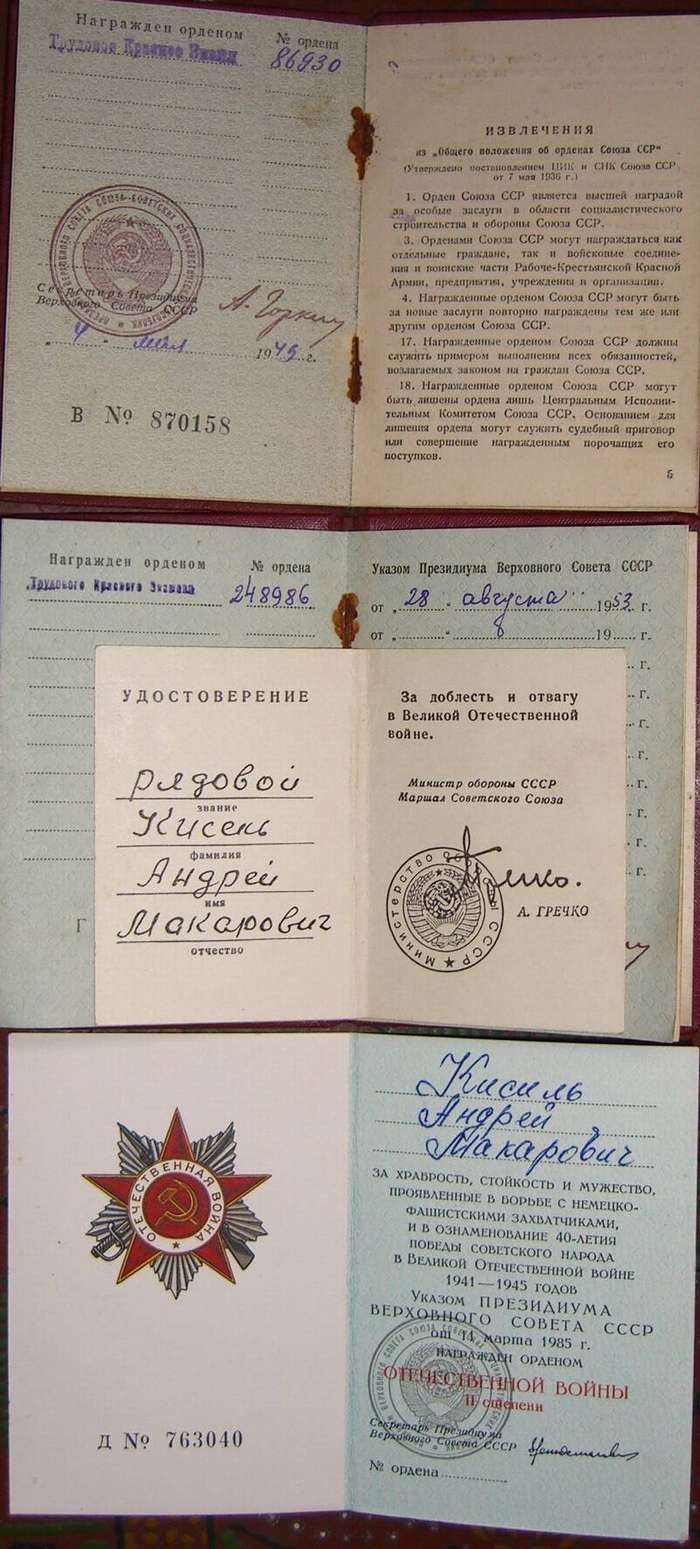 Награжден орденом
№ ордена
Трудовое Красное Знамя
86930
Секретарь Президиума
Верховного Совета СССР
А. Горкин
„ 4 " мая 1949 г.
В № 870158
ИЗВЛЕЧЕНИЯ
из „Общего положения об орденах Союза ССР"
(Утверждено постановлением ЦИК и СНК Союза ССР
от 7 мая 1936 г.)
1. Орден Союза ССР является высшей наградой
за особые заслуги в области социалистического
строительства и обороны Союза ССР.
3. Орденами Союза ССР могут награждаться как
отдельные граждане, так и войсковые соедине-
ния и воинские части Рабоче-Крестьянской Красной
Армии, предприятия, учреждения и организации.
4. Награжденные орденом Союза ССР могут быть
за новые заслуги повторно награждены тем же или
другим орденом Союза ССР.
17. Награжденные орденом Союза ССР должны
служить примером выполнения всех обязанностей,
возлагаемых законом на граждан Союза ССР.
18. Награжденные орденом Союза ССР могут
быть лишены ордена лишь Центральным Исполни-
тельным Комитетом Союза ССР. Основанием для
лишения ордена могут служить судебный приговор
или совершение награжденным порочащих его
поступков.
5
Награжден орденом
№ ордена
Трудового Красного Знамени
248986
Указом Президиума Верховного Совета СССР
от „ 28 " августа 1953 г.
от „ " 19 г.
г.
г.
г.
г.
г.
г.
г.
г.
Г
УДОСТОВЕРЕНИЕ
рядовой
звание
Кисель
фамилия
Андрей
имя
Макарович
отчество
За доблесть и отвагу
в Великой Отечественной
войне.
Министр обороны СССР
Маршал Советского Союза
Министерство обороны СССР
А. ГРЕЧКО
ОТЕЧЕСТВЕННАЯ ВОЙНА
Д № 763040
Кисиль
Андрей
Макарович
ЗА ХРАБРОСТЬ, СТОЙКОСТЬ И МУЖЕСТВО,
ПРОЯВЛЕННЫЕ В БОРЬБЕ С НЕМЕЦКО-
ФАШИСТСКИМИ ЗАХВАТЧИКАМИ,
И В ОЗНАМЕНОВАНИЕ 40-ЛЕТИЯ
ПОБЕДЫ СОВЕТСКОГО НАРОДА
В ВЕЛИКОЙ ОТЕЧЕСТВЕННОЙ ВОЙНЕ
1941—1945 ГОДОВ
УКАЗОМ ПРЕЗИДИУМА
ВЕРХОВНОГО СОВЕТА СССР
от 11 марта 1985 г.
НАГРАЖДЕН ОРДЕНОМ
ОТЕЧЕСТВЕННОЙ ВОЙНЫ
II степени
Секретарь Президиума
Верховного Совета СССР
№ ордена